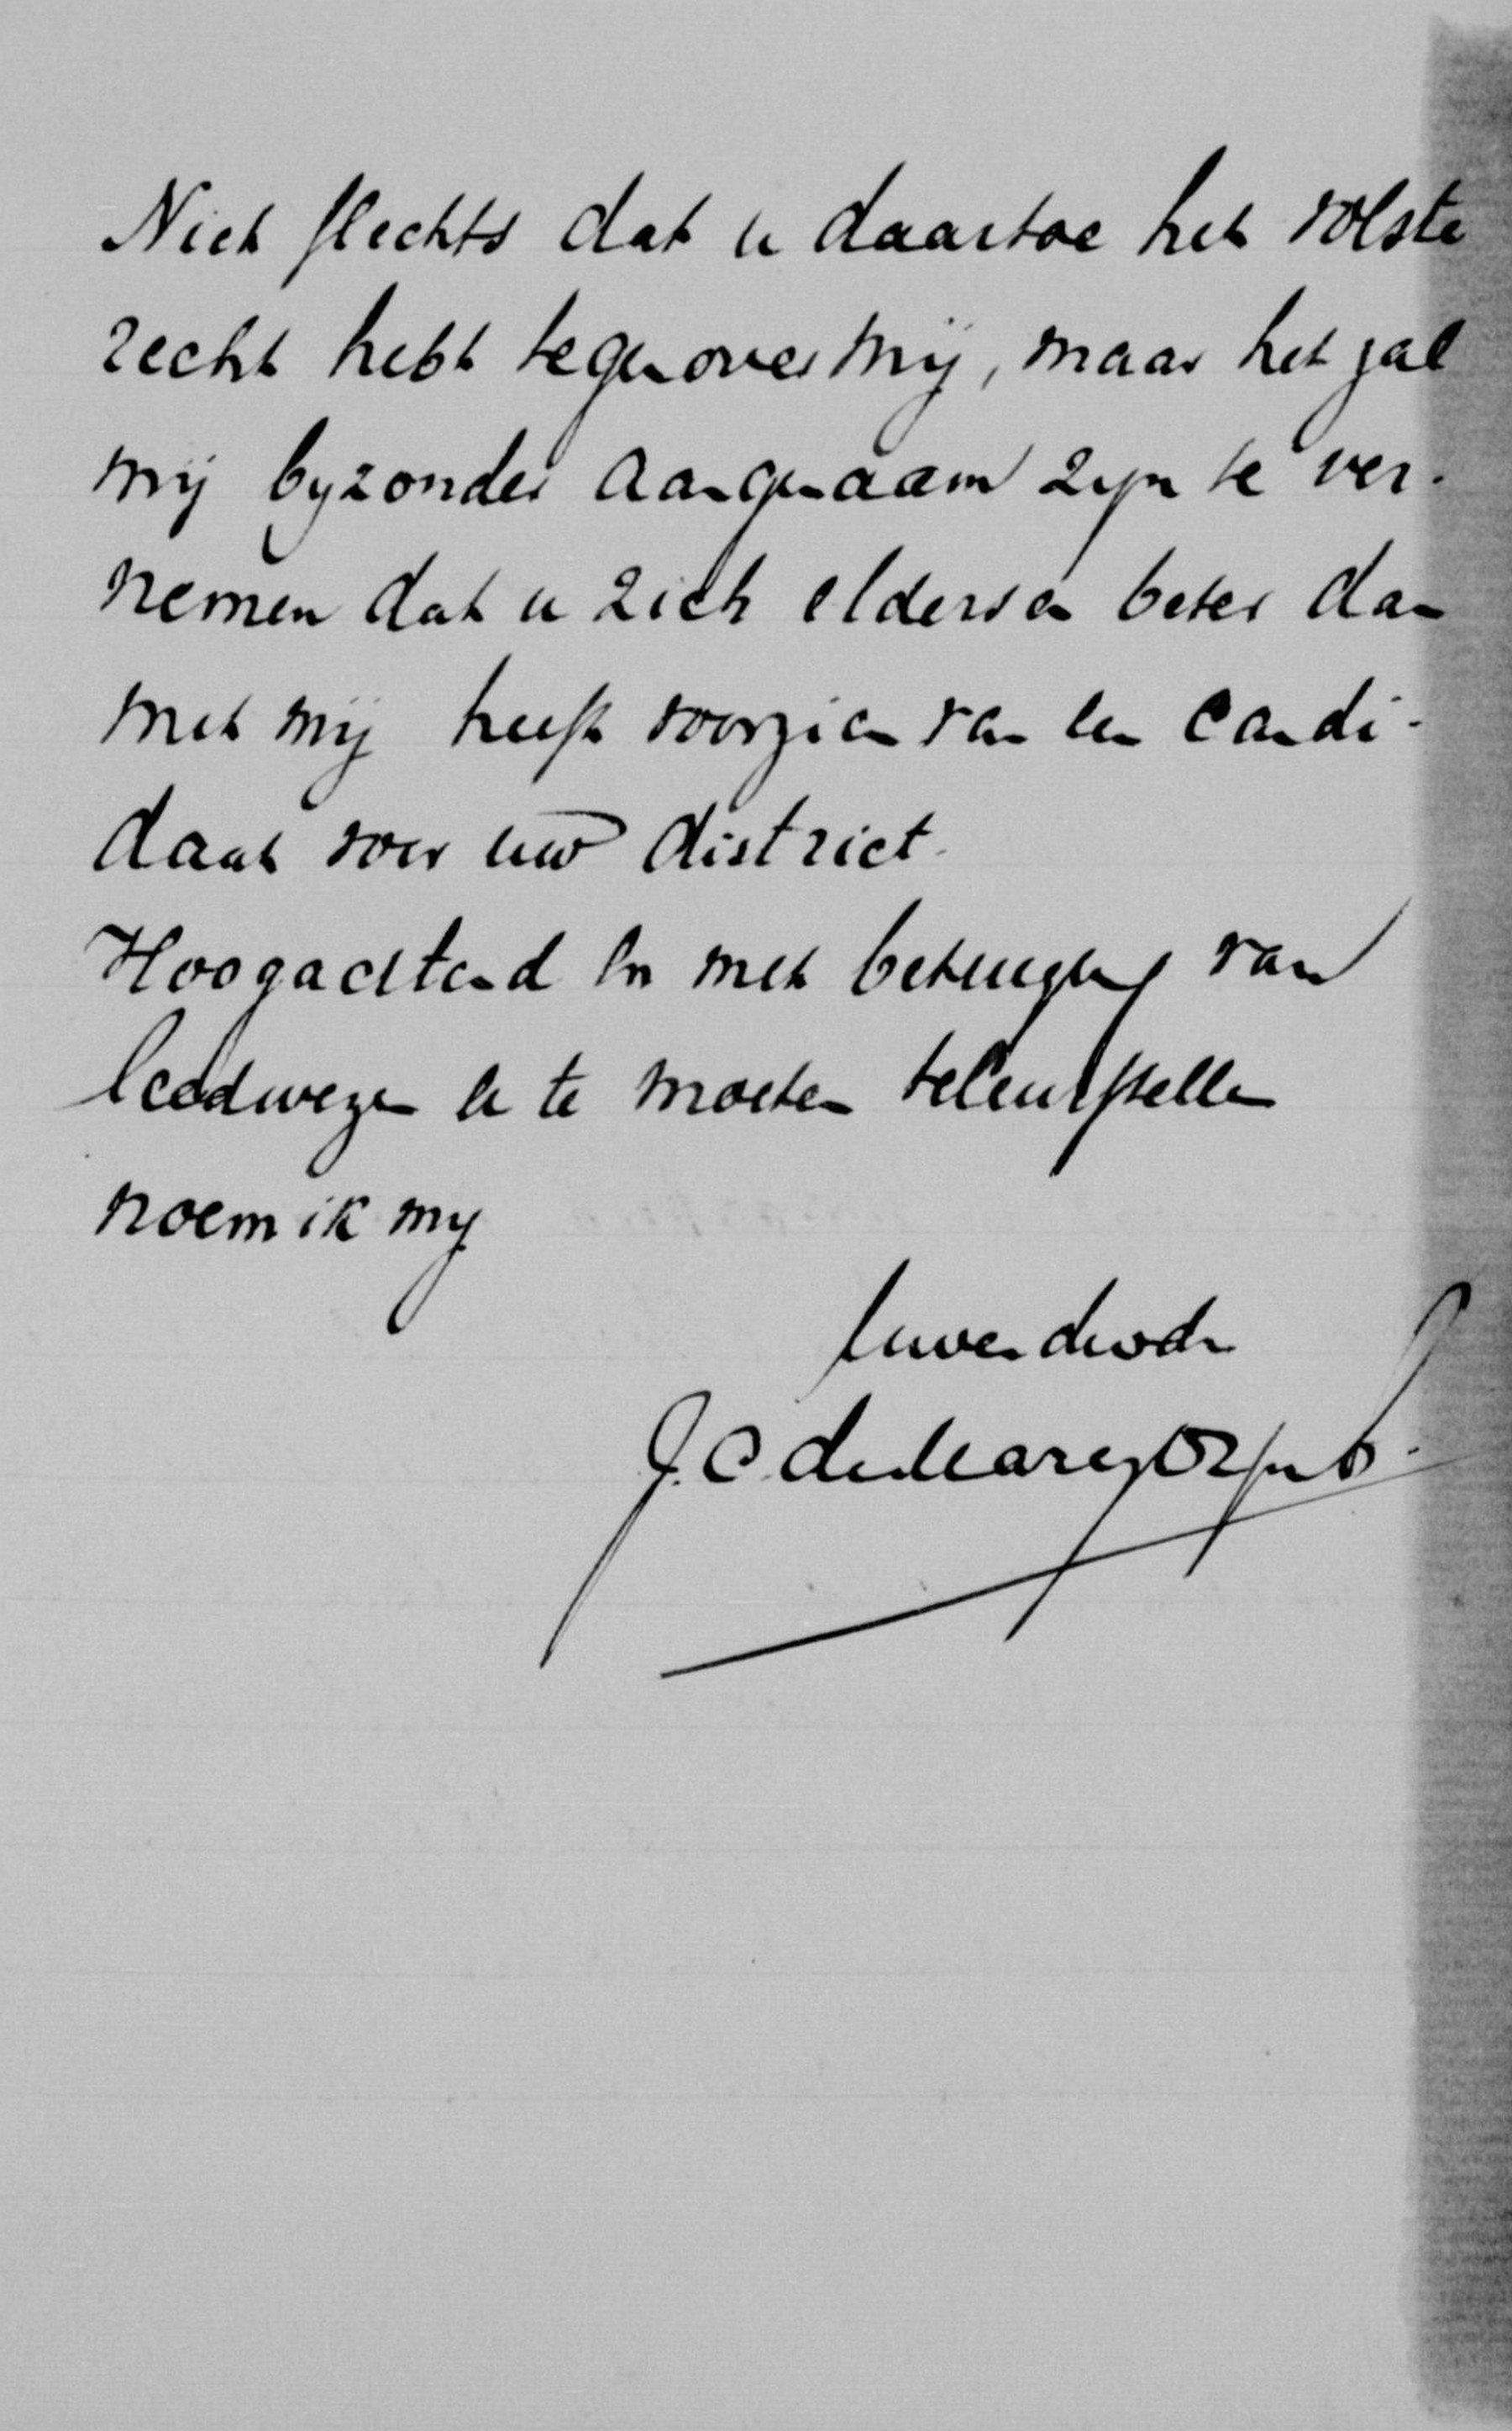 Niet slechts dat u daartoe het volste
recht hebt tegenover mij, maar het zal
mij byzonder aangenaam zijn te ver-
nemen dat u zich elders en beter dan
met mij heeft voorzien van een candi-
daat voor uw district.
Hoogachtend en met betuiging van
leedwezen u te moeten teleurstellen
noem ik my
Uwen dwdr
J. C. de Marez Oyens